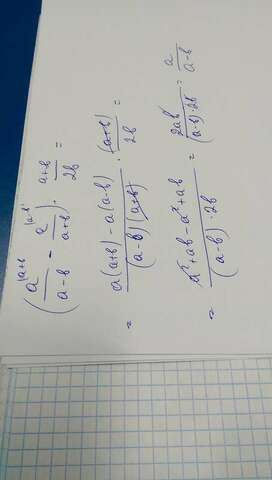 (a^{|a+b}/(a-b) - a^{|a-b}/(a+b)) · (a+b)/2b =
= (a(a+b) - a(a-b))/((a-b)(a+b)) · (a+b)/2b =
= (a²+ab-a²+ab)/((a-b)·2b) = 2ab/((a-b)·2b) = a/(a-b)